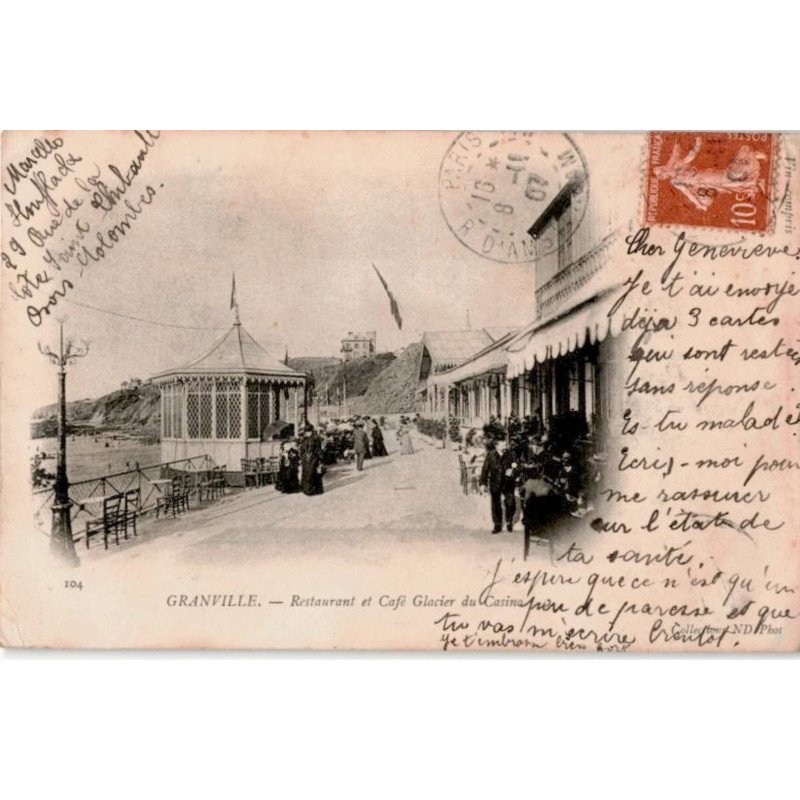 Marcelle
29 Rue de la
Côte Saint
Bois-Colombes.
PARIS
R. D'AMS
REPUBLIQUE FRANÇAISE
POSTES
10c
Cher Geneviève,
Je t'ai envoyé
déja 3 cartes
qui sont resté
sans réponse.
Es-tu malade
Ecris-moi pour
me rassurer
sur l'état de
ta santé.
J'espère que ce n'est qu'un
peu de paresse et que
tu vas m'écrire bientôt.
Je t'embrasse bien fort
104
GRANVILLE. — Restaurant et Café Glacier du Casino
Collections ND Phot